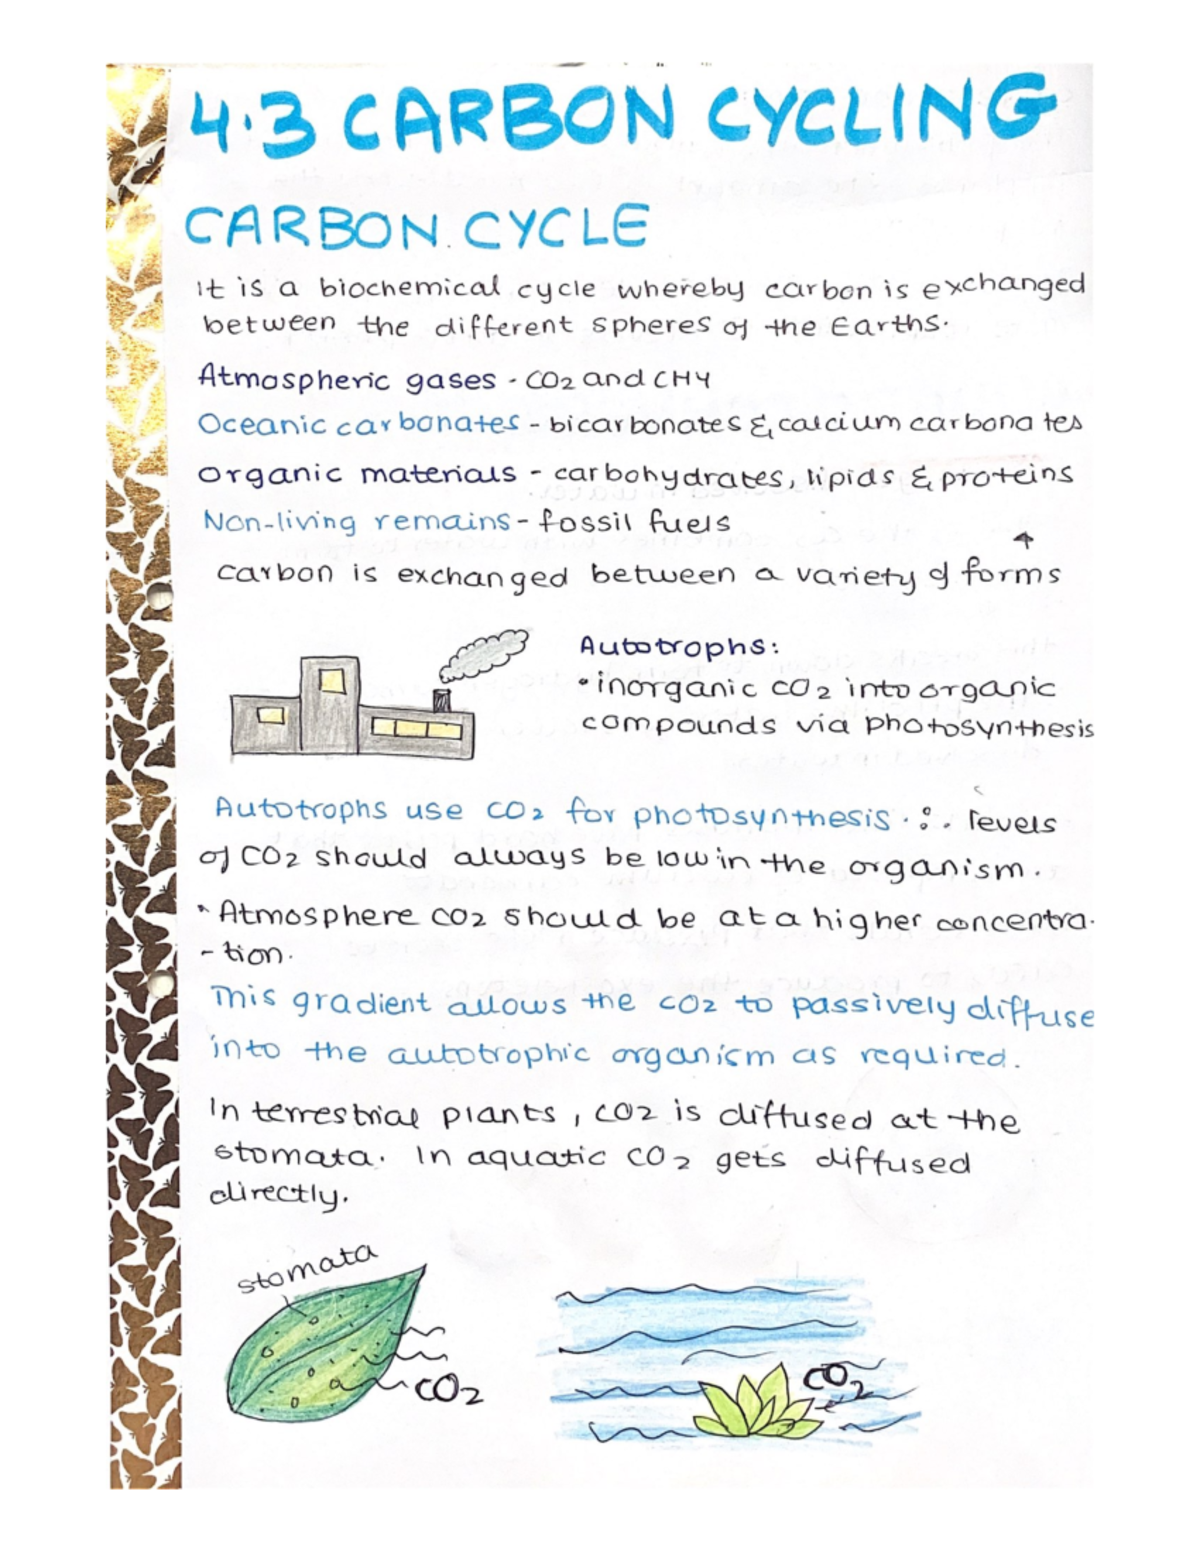 4.3 CARBON CYCLING
CARBON CYCLE
It is a biochemical cycle whereby carbon is exchanged
between the different spheres of the Earths.
Atmospheric gases - CO2 and CH4
Oceanic carbonates - bicarbonates & calcium carbonates
Organic materials - carbohydrates, lipids & proteins
Non-living remains - fossil fuels
carbon is exchanged between a variety of forms
Autotrophs:
• inorganic CO2 into organic
compounds via photosynthesis
Autotrophs use CO2 for photosynthesis. ∴ levels
of CO2 should always be low in the organism.
* Atmosphere CO2 should be at a higher concentra-
-tion.
This gradient allows the CO2 to passively diffuse
into the autotrophic organism as required.
In terrestrial plants, CO2 is diffused at the
stomata. In aquatic CO2 gets diffused
directly.
stomata
CO2
CO2